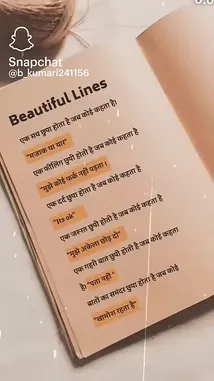 Snapchat
@b_kumari241156
Beautiful Lines
एक सच छुपा होता है जब कोई कहता है।
"मजाक था यार"
एक फीलिंग छुपी होती है जब कोई कहता है
"मुझे कोई फर्क नहीं पड़ता।
एक दर्द छुपा होता है जब कोई कहता है
"Its ok"
एक जरूरत छुपी होती है जब कोई कहता है
"मुझे अकेला छोड़ दो"
एक गहरी बात छुपी होती है जब कोई कहता
है। "पता नहीं "
बातों का समंदर छुपा होता है जब कोई
"खामोश रहता है"